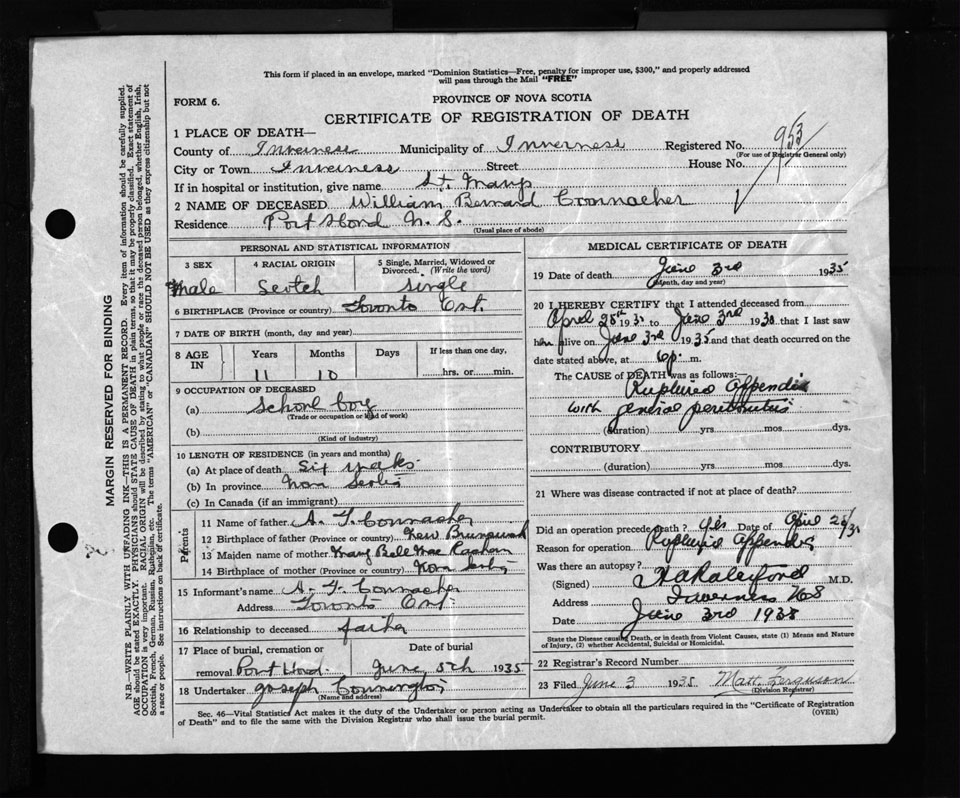 This form if placed in an envelope, marked "Dominion Statistics—Free, penalty for improper use, $300," and properly addressed
will pass through the Mail "FREE"
FORM 6.
PROVINCE OF NOVA SCOTIA
CERTIFICATE OF REGISTRATION OF DEATH
953
1 PLACE OF DEATH—
County of Inverness Municipality of Inverness Registered No.
(For use of Registrar General only)
City or Town Inverness Street House No.
If in hospital or institution, give name St. Marys
2 NAME OF DECEASED William Bernard
Residence Port Hood N. S.
(Usual place of abode)
PERSONAL AND STATISTICAL INFORMATION
3 SEX 4 RACIAL ORIGIN 5 Single, Married, Widowed or Divorced. (Write the word)
Male Scotch Single
6 BIRTHPLACE (Province or country) Toronto Ont.
7 DATE OF BIRTH (month, day and year)
8 AGE IN Years Months Days If less than one day,
11 10 hrs. or min.
9 OCCUPATION OF DECEASED
(a) School boy
(Trade or occupation or kind of work)
(b)
(Kind of industry)
10 LENGTH OF RESIDENCE (in years and months)
(a) At place of death Six weeks
(b) In province Nova Scotia
(c) In Canada (if an immigrant)
Parents
11 Name of father A. F. Connacher
12 Birthplace of father (Province or country) New Brunswick
13 Maiden name of mother Mary Bell Mac
14 Birthplace of mother (Province or country) Nova Scotia
15 Informant's name A. F. Connacher
Address Toronto Ont.
16 Relationship to deceased father
17 Place of burial, cremation or Date of burial
removal Port Hood. June 5th 1935
18 Undertaker Joseph
(Name and address)
MEDICAL CERTIFICATE OF DEATH
19 Date of death June 3rd 1935
(Month, day and year)
20 I HEREBY CERTIFY that I attended deceased from
April 25th 193 to June 3rd 193 that I last saw
him alive on June 3rd 1935 and that death occurred on the
date stated above, at 6 p. m.
The CAUSE of DEATH was as follows:
Ruptured Appendix
with general peritonitis
(duration) yrs. mos. dys.
CONTRIBUTORY
(duration) yrs. mos. dys.
21 Where was disease contracted if not at place of death?
Did an operation precede death? Yes Date of April
Reason for operation Ruptured Appendix
Was there an autopsy?
(Signed) M.D.
Address Inverness N S
Date June 3rd 1935
State the Disease causing Death, or in death from Violent Causes, state (1) Means and Nature
of Injury, (2) whether Accidental, Suicidal or Homicidal.
22 Registrar's Record Number
23 Filed June 3 1935 Matt. Ferguson
(Division Registrar)
Sec. 46—Vital Statistics Act makes it the duty of the Undertaker or person acting as Undertaker to obtain all the particulars required in the "Certificate of Registration
of Death" and to file the same with the Division Registrar who shall issue the burial permit. (OVER)
MARGIN RESERVED FOR BINDING
N.B.—WRITE PLAINLY WITH UNFADING INK—THIS IS A PERMANENT RECORD. Every item of information should be carefully supplied.
AGE should be stated EXACTLY. PHYSICIANS should STATE CAUSE OF DEATH in plain terms, so that it may be properly classified. Exact statement of
OCCUPATION is very important. RACIAL ORIGIN will be described by stating to what people or race the deceased person belonged, whether English, Irish,
Scottish, French, German, Russian, Ruthenian, etc. The terms "AMERICAN" or "CANADIAN" SHOULD NOT BE USED as they express citizenship but not
a race or people. See instructions on back of certificate.